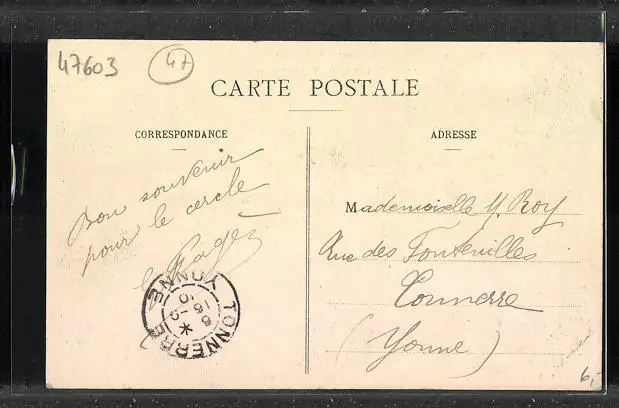 47603
47
CARTE POSTALE
CORRESPONDANCE
Bon souvenir
pour le cercle
ADRESSE
Mademoiselle Y. Roy
Rue des Fontenilles
Tonnerre
(Yonne)
TONNERRE
YONNE
6,-